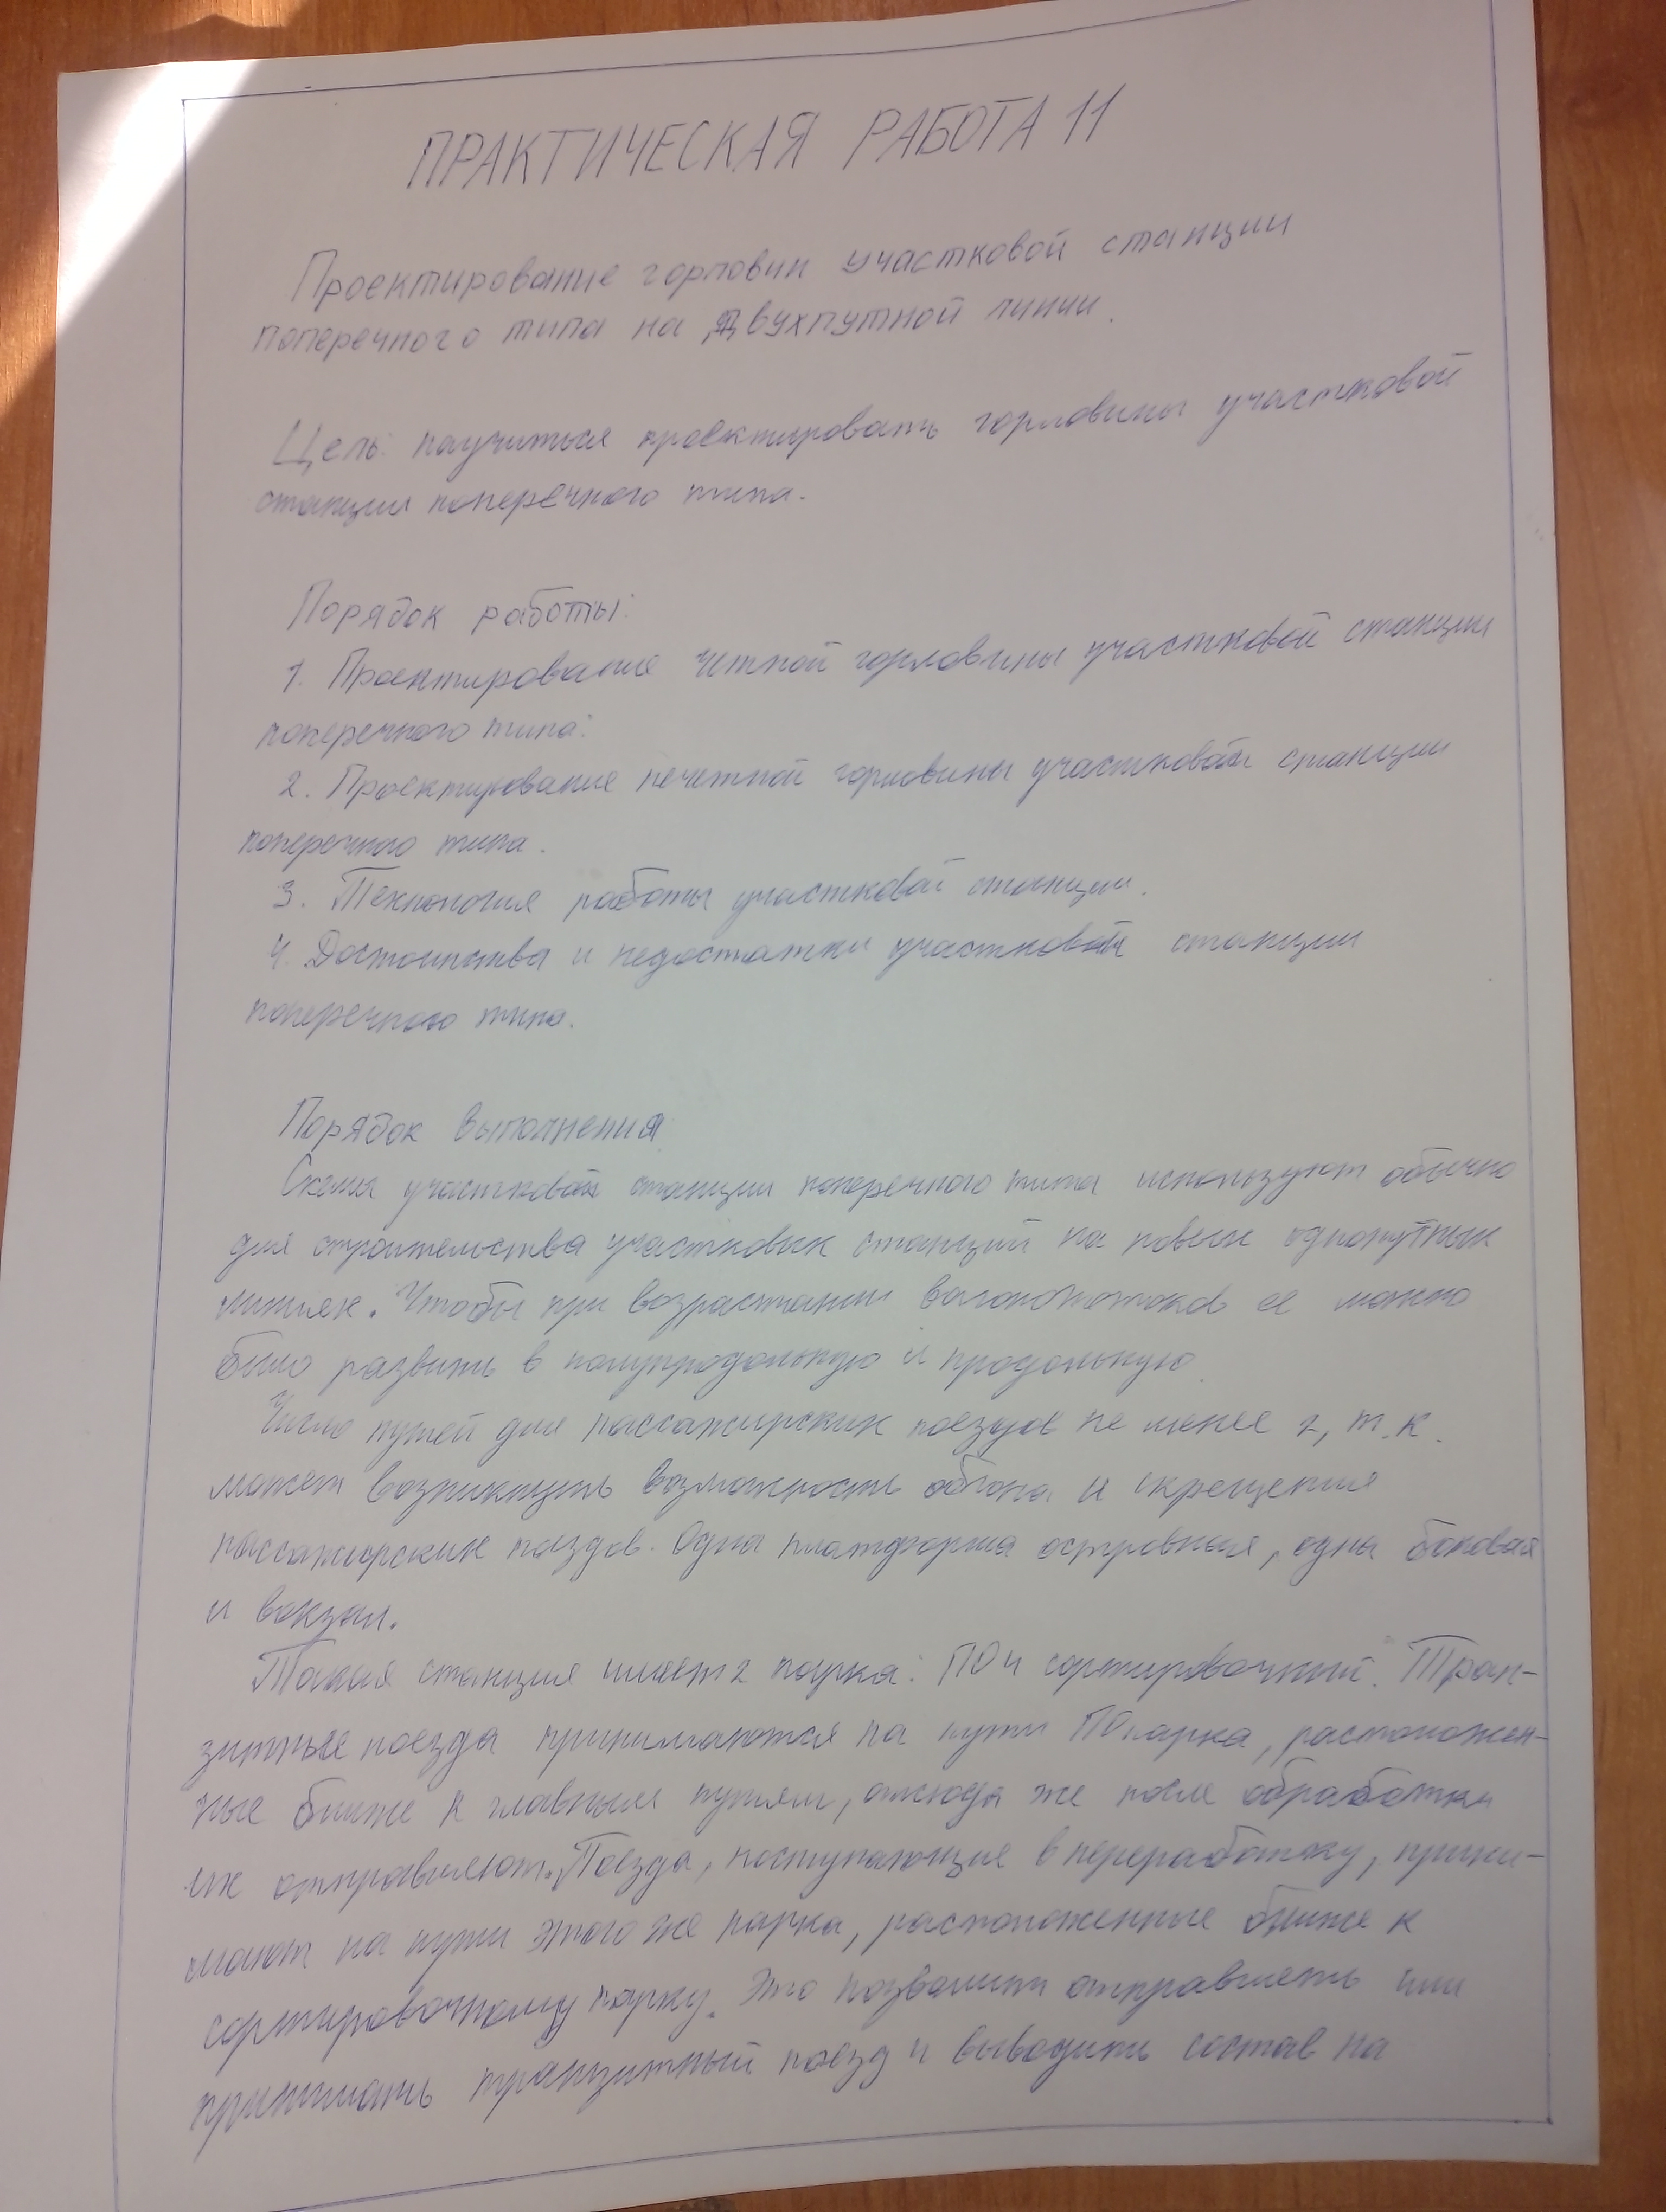 ПРАКТИЧЕСКАЯ РАБОТА 11
Проектирование горловин участковой станции
поперечного типа на двухпутной линии.
Цель: научиться проектировать горловины участковой
станции поперечного типа.
Порядок работы:
1. Проектирование четной горловины участковой станции
поперечного типа:
2. Проектирование нечетной горловины участковой станции
поперечного типа.
3. Технология работы участковой станции.
4. Достоинства и недостатки участковой станции
поперечного типа.
Порядок выполнения
Схемы участковой станции поперечного типа используют обычно
для строительства участковых станций на новых однопутных
линиях. Чтобы при возрастании вагонопотоков ее можно
было развить в полупродольную и продольную.
Число путей для пассажирских поездов не менее 2, т.к.
может возникнуть возможность обгона и скрещения
пассажирских поездов. Одна платформа островная, одна боковая
и вокзал.
Такая станция имеет 2 парка: ПО и сортировочный. Тран-
зитные поезда принимаются на пути ПО парка, расположен-
ные ближе к главным путям, отсюда же после обработки
их отправляют. Поезда, поступающие в переработку, прини-
мают на пути этого же парка, расположенные ближе к
сортировочному парку. Это позволит отправлять или
принимать транзитный поезд и выводить состав на